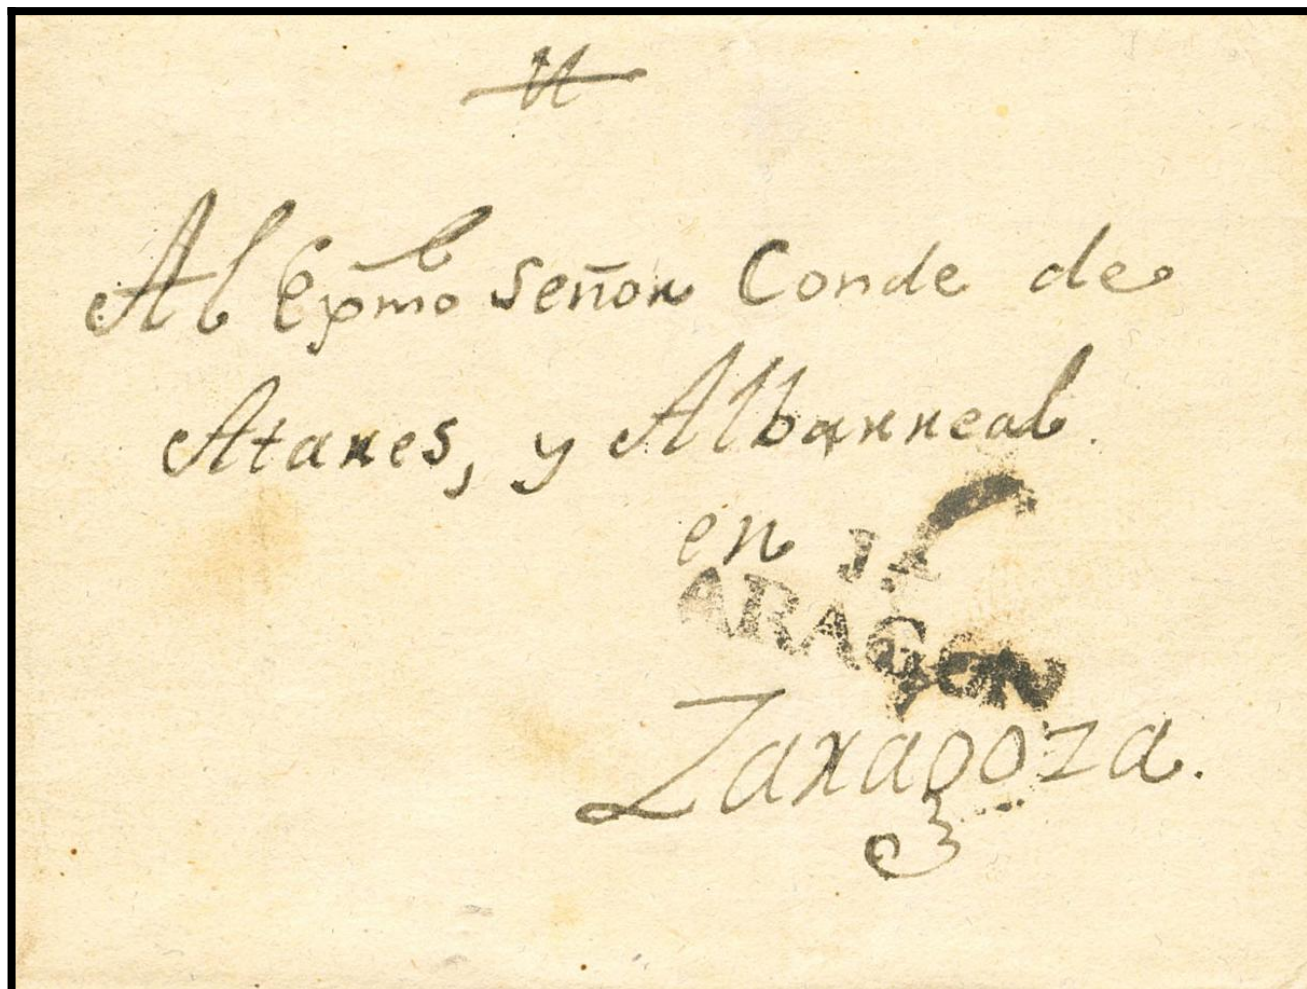 Al Exmo Señor Conde de
Atares, y Albarreal.
en
ARAGON
Zaragoza.